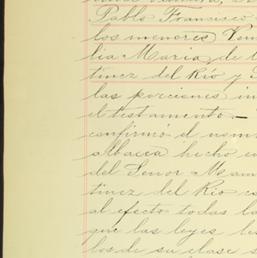 Pablo Francisco
los menores
lia Maria de
tinez del Río y
las porciones in
el testamento.—
confirmó el nom
albacea hecho en
del Señor Mam
tinez del Río co
al efecto todas la
que las leyes les
los de su clase s